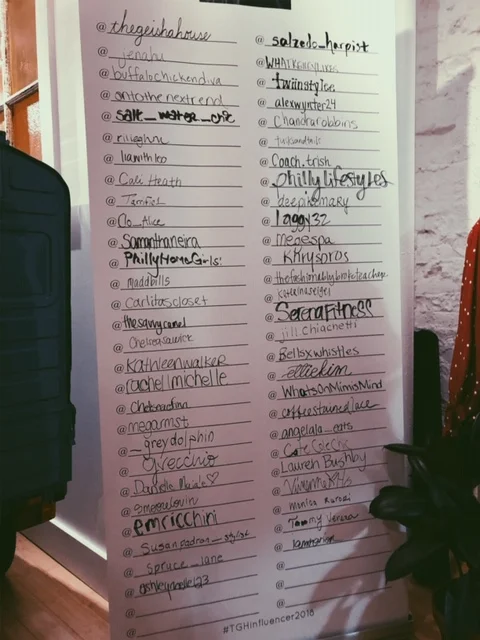 @ thegeishahouse
@ jenabu
@ buffalochickendiva
@ ontothenextrend
@ salt_water_chic
@
@ liawithloo
@ Cali Heath
@
@ Clo_Alice
@ Samanthaneira
@ PhillyHomeGirls
@ maddbills
@ carlitascloset
@ thesavvycamel
@
@ Kathleenwalker
@ rachellmichelle
@
@ megamst
@ _greydolphin
@ Gvecchio
@ Danielle
@
@ emricchini
@ Susanpadron_stylist
@ spruce_lane
@ ashleynoelle123
@
@
@ salzedo_harpist
@
@ twiinstylee
@ alexwynter24
@ Chandrarobbins
@
@ Coach.trish
@ phillylifestyles
@ deepikemary
@ laggy32
@ megespa
@ Khrysros
@ thefashionablybroketeacher
@ katerinaseigel
@ SerenaFitness
@ jill.Chiachetti
@ Bellsxwhistles
@ elliekim
@ WhatsOnMimisMind
@ coffeestainedlace
@ angelala_eats
@ CateColeChic
@ Lauren Bushby
@
@ monica
@ Tammy
@
@
@
@
#TGHinfluencer2018